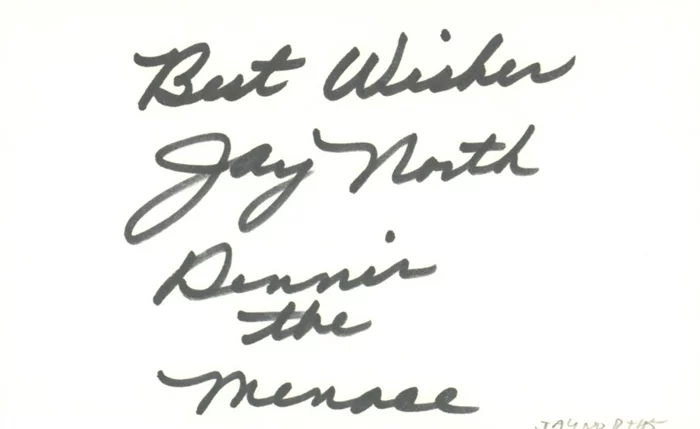 Best Wishes
Jay North
Dennis
the
Menace